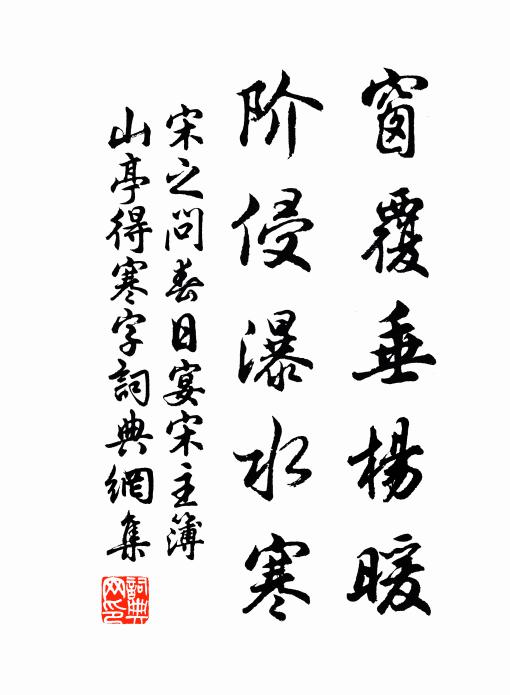 窗覆垂楊暖
阶侵瀑水寒
宋之问春日宴宋主簿
山亭得寒字詞典網集
詞典网印